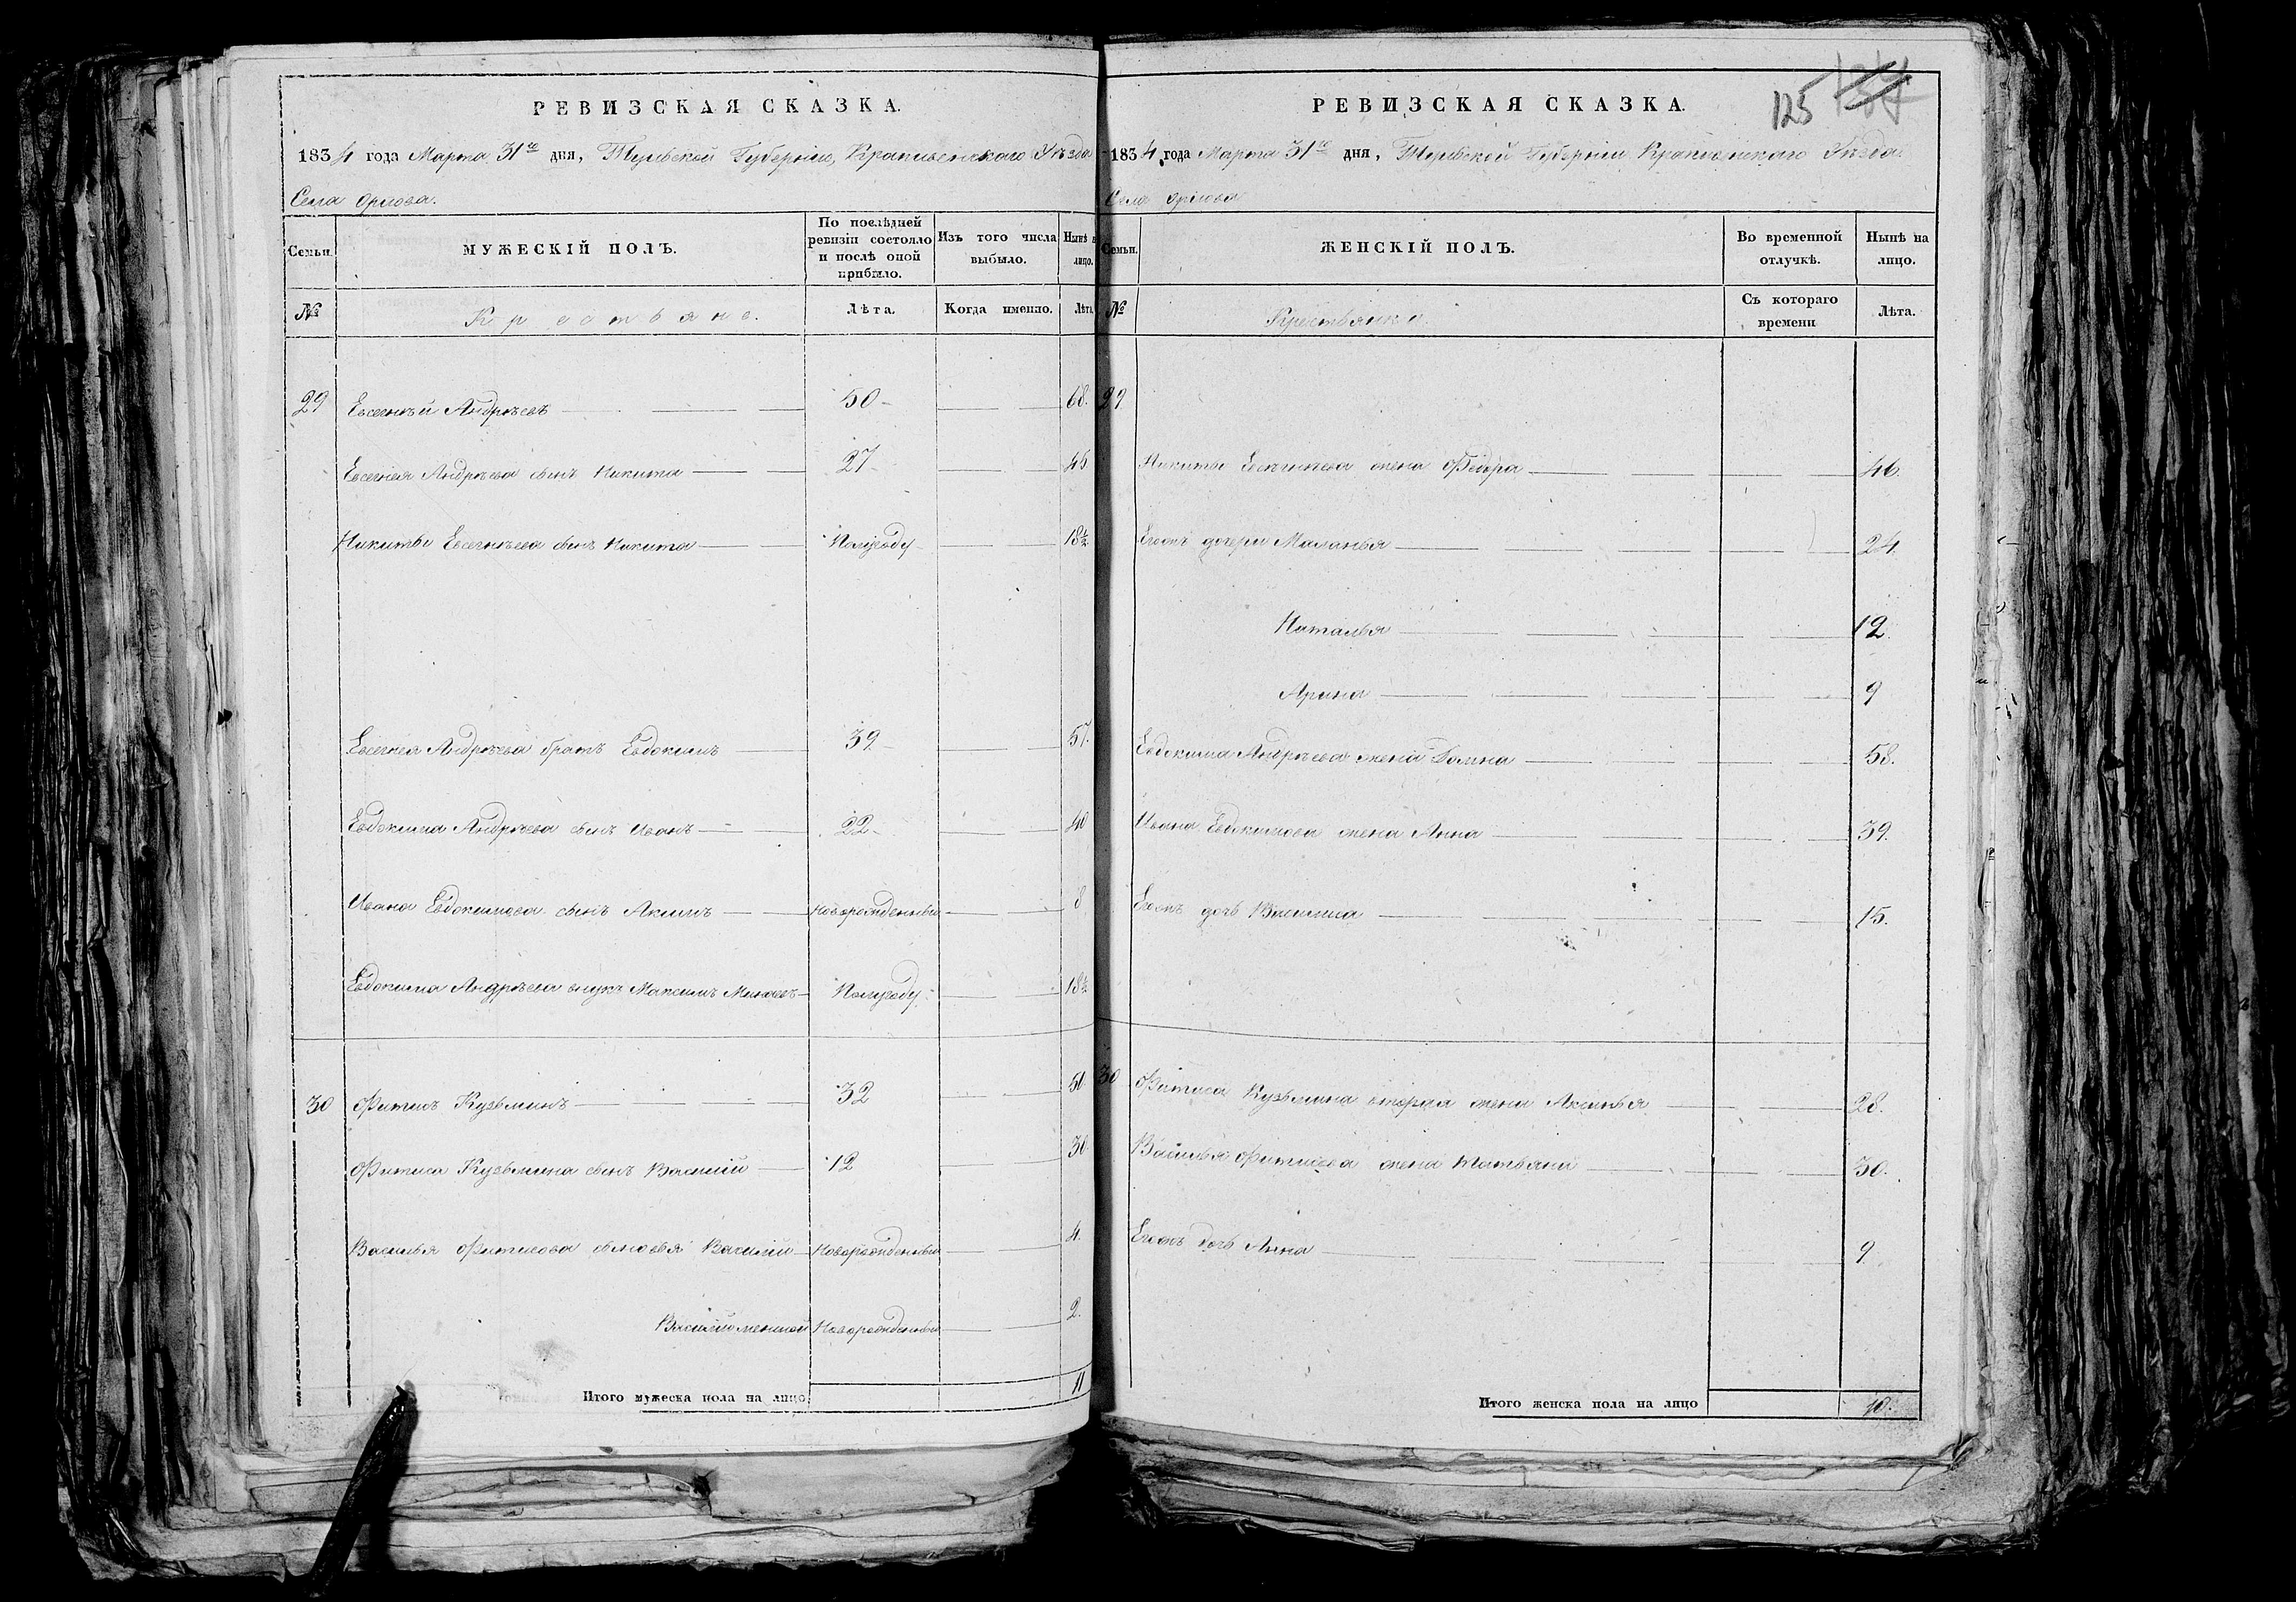 РЕВИЗСКАЯ СКАЗКА.
1834 года Марта 31го дня, Тульской Губерніи, Крапивенскаго Уѣзда
Села Орлова.
Семьи.
МУЖЕСКІЙ ПОЛЪ.
По послѣдней ревизіи состояло и послѣ оной прибыло.
Изъ того числа выбыло.
Нынѣ на лицо.
№
Крестьяне.
Лѣта.
Когда именно.
Лѣта.
29 Евсегнѣй Андрѣевъ 50 68.
Евсегнея Андрѣева сынъ Никита 27 45
Никиты Евсегнѣева сынъ Никита Полугоду 18½
Евсегнея Андрѣева братъ Евдокимъ 39 57.
Евдокима Андрѣева сынъ Иванъ 22 40
Ивана Евдокимова сынъ Акимъ Новорожденный 8
Евдокима Андрѣева внукъ Максимъ Полугоду 18½
30 Фитисъ Кузьминъ 32 50
Фитиса Кузьмина сынъ Василій 12 30
Василья Фитисова сыновья Василій Новорожденный 4.
Василій меншой Новорожденный 2.
Итого мужеска пола на лицо 11
125
РЕВИЗСКАЯ СКАЗКА.
1834 года Марта 31го дня, Тульской Губерніи Крапивенскаго Уѣзда
Села Орлова
Семьи.
ЖЕНСКІЙ ПОЛЪ.
Во временной отлучкѣ.
Нынѣ на лицо.
№
Крестьянки.
Съ котораго времени
Лѣта.
29
Никиты Евсегнѣева жена Федора 46.
Егожъ дочери Маланья 24.
Наталья 12.
Арина 9
Евдокима Андрѣева жена Домна 58.
Ивана Евдокимова жена Анна 39.
Егожъ дочь Василиса 15.
30 Фитиса Кузьмина вторая жена Аксинья 28.
Василья Фитисова жена Татьяна 30.
Егожъ дочь Анна 9.
Итого женска пола на лицо 10.